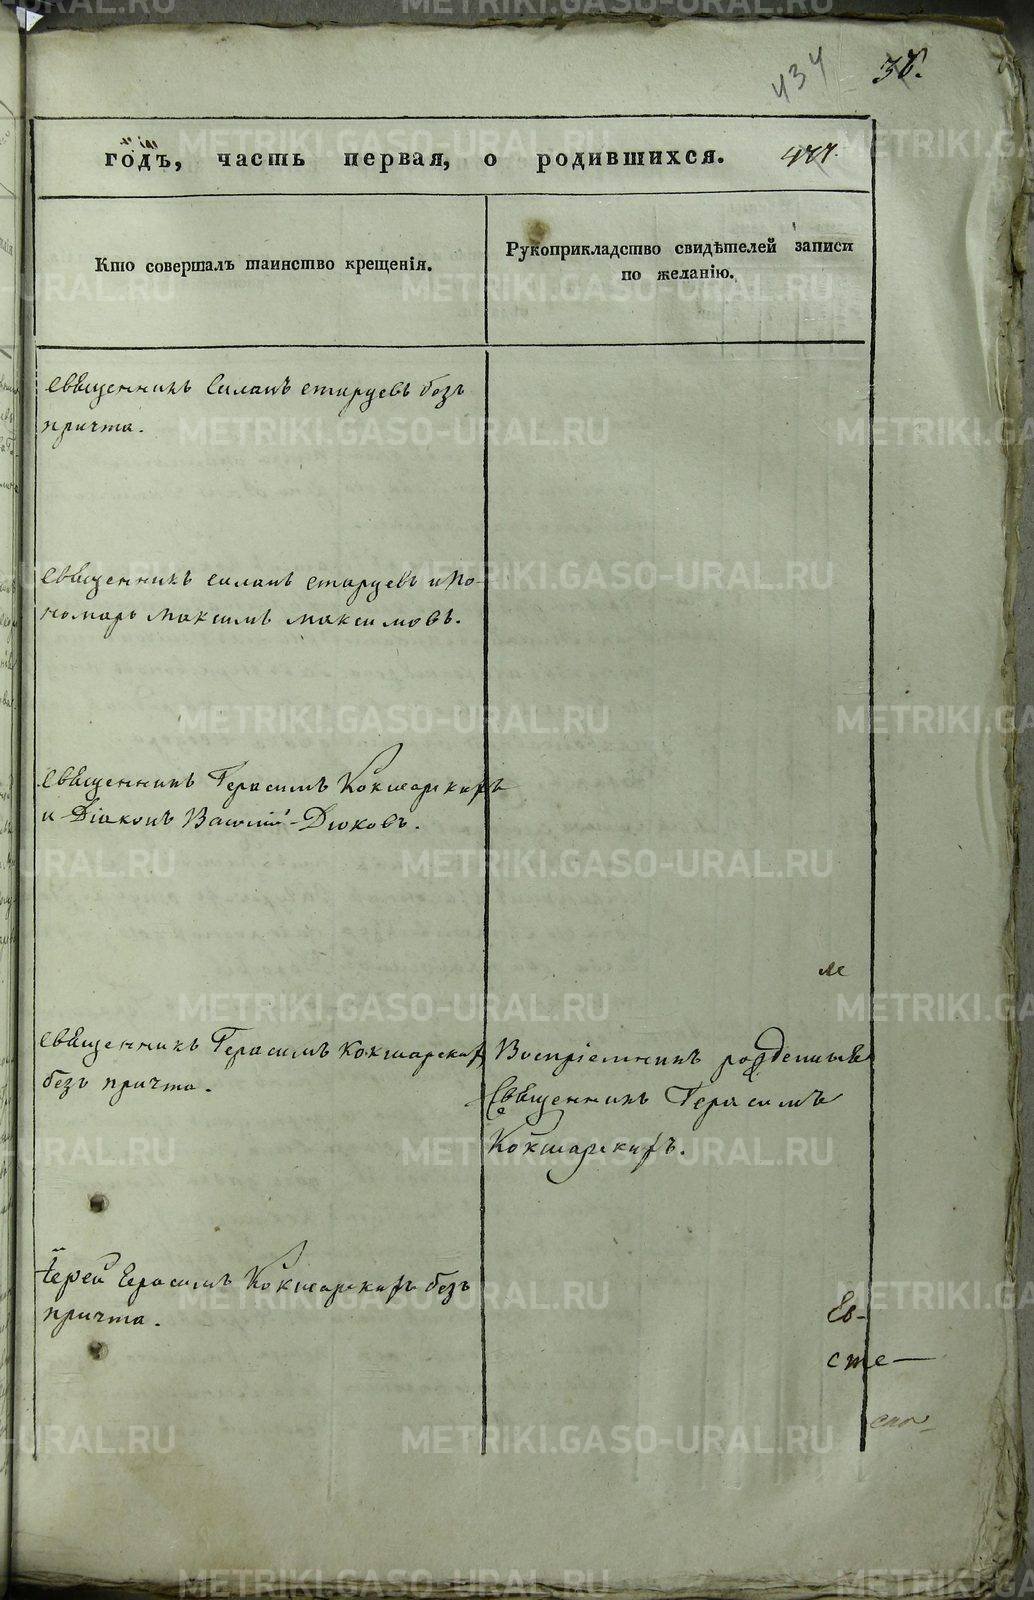 434 38.
годъ, часть первая, о родившихся. 427.
Кто совершалъ таинство крещенія.
Рукоприкладство свидѣтелей записи
по желанію.
Священникъ Силанъ Старцевъ безъ
причта.
Священникъ Силанъ Старцевъ и По-
номарь Максимъ Максимовъ.
Священникъ Герасимъ Кокшарскихъ
и Діаконъ Василій Дюковъ.
Священникъ Герасимъ Кокшарских
безъ причта.
Воспріемникъ
Священникъ Герасимъ
Кокшарскихъ.
Іерей Герасимъ Кокшарскихъ безъ
причта.
Ев-
сте-
METRIKI.GASO-URAL.RU